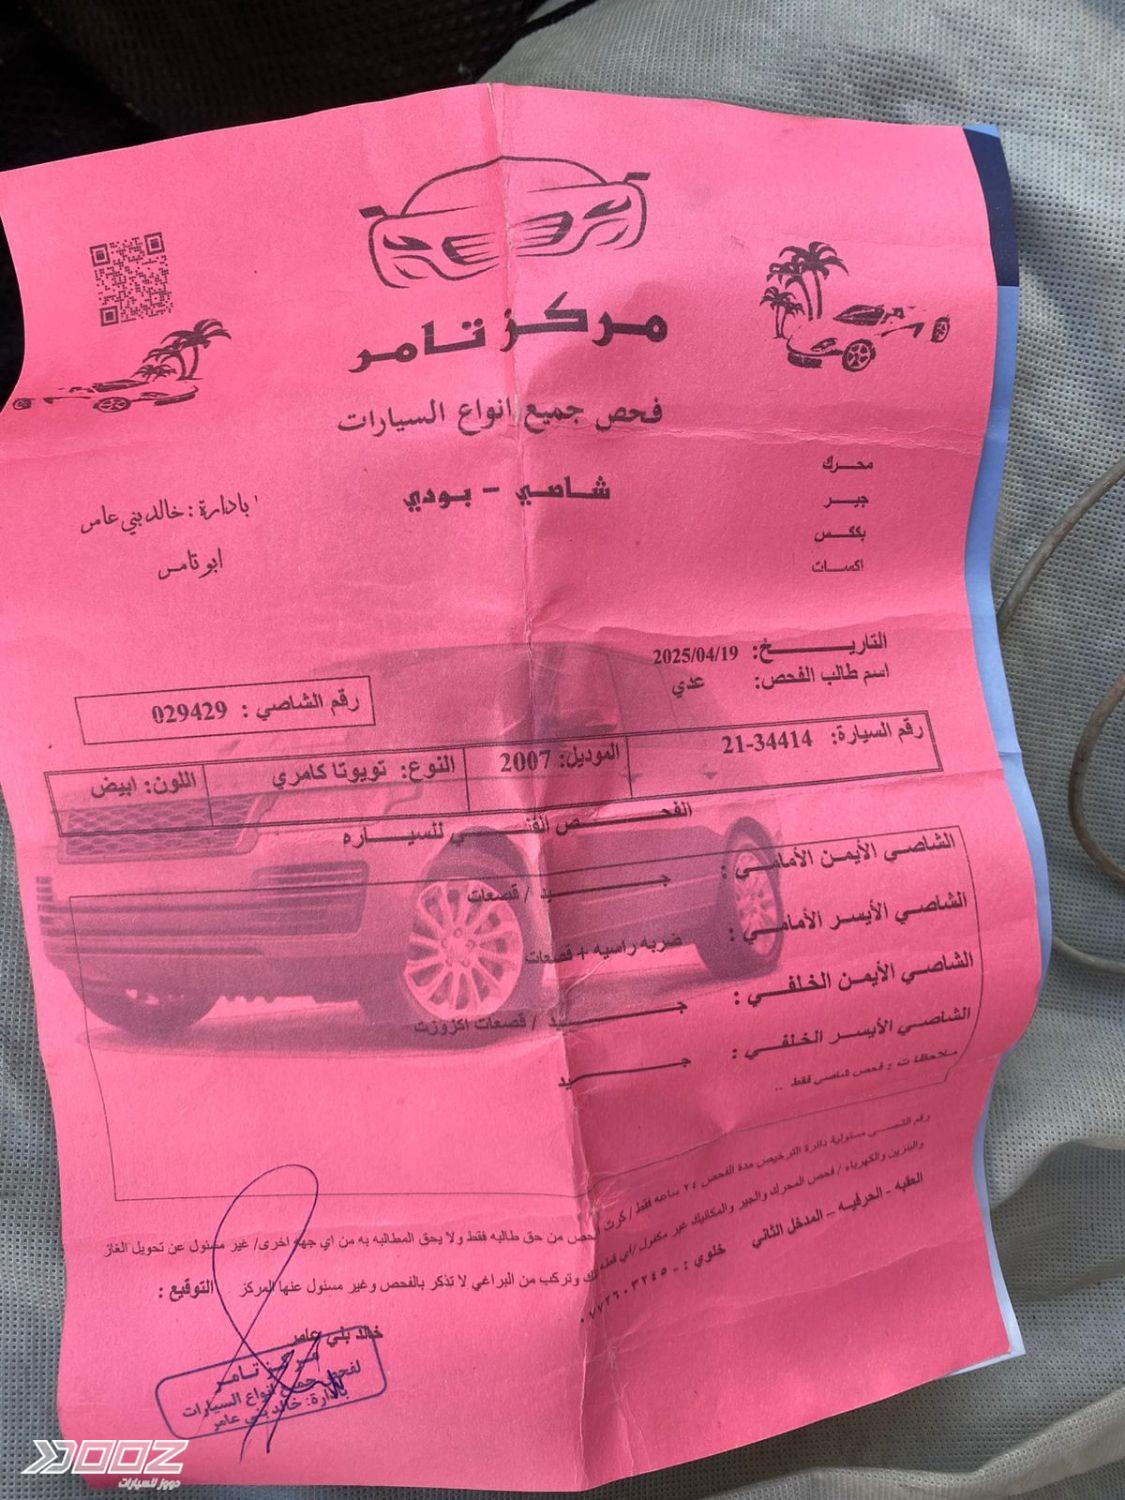 مركز تامر
فحص جميع انواع السيارات
شاصي - بودي
محرك
جير
بككس
اكسات
بادارة : خالد بني عامر
ابو تامر
التاريخ: 2025/04/19
اسم طالب الفحص: عدي
رقم الشاصي : 029429
رقم السيارة: 21-34414 الموديل: 2007 النوع: تويوتا كامري اللون: ابيض
الفحص الفني للسياره
الشاصي الأيمن الأمامي : جيد / قصعات
الشاصي الأيسر الأمامي : ضربه راسيه + قصعات
الشاصي الأيمن الخلفي : جيد / قصعات اكزوزت
الشاصي الأيسر الخلفي : جيد
ملاحظات : فحص شاصي فقط ..
رقم الشصي مسئولية دائرة الترخيص مدة الفحص ٢٤ ساعه فقط / كرت الفحص من حق طالبه فقط ولا يحق المطالبه به من اي جهه اخرى/ غير مسئول عن تحويل الغاز
والبنزين والكهرباء / فحص المحرك والجير والمكانيك غير مكفول /اي قطعه تفك وتركب من البراغي لا تذكر بالفحص وغير مسئول عنها المركز
العقبه - الحرفيه - المدخل الثاني خلوي : - ٠٧٧٢٦٠٣٢٤٥
التوقيع :
خالد بني عامر
مركز تامر
لفحص جميع انواع السيارات
بادارة: خالد بني عامر
DOOZ
دووز للسيارات